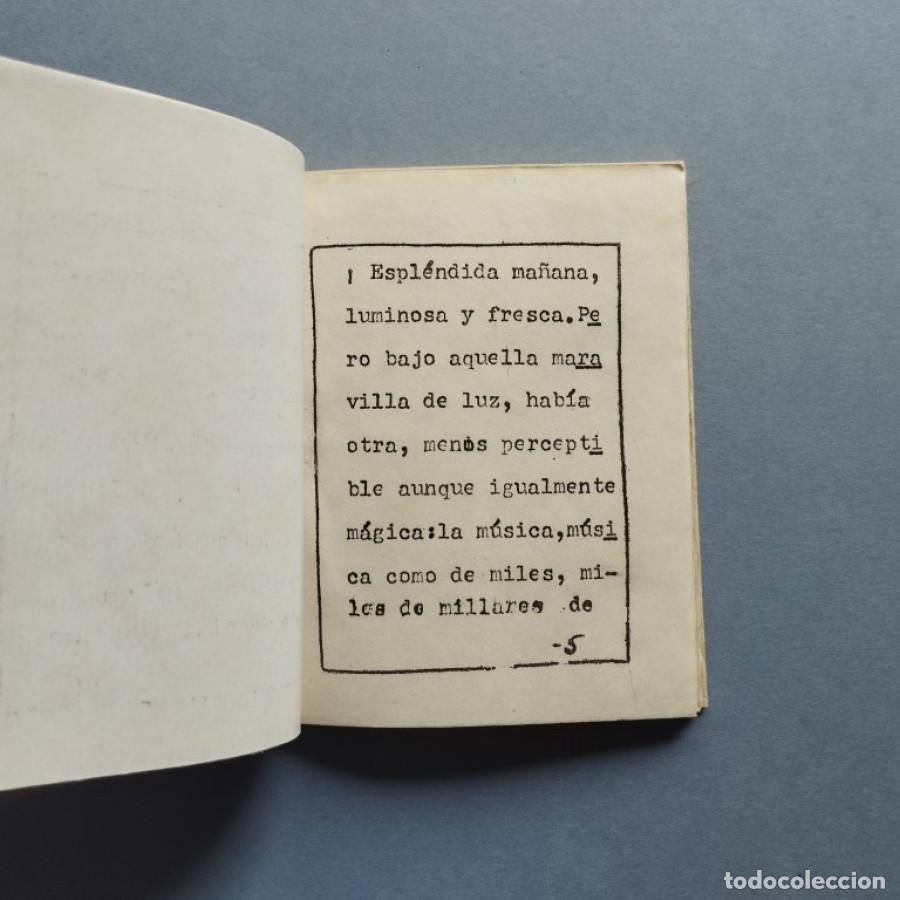 ¡ Espléndida mañana,
luminosa y fresca.Pe
ro bajo aquella mara
villa de luz, había
otra, menos percepti
ble aunque igualmente
mágica:la música,músi
ca como de miles, mi-
les de millares de
-5
todocoleccion